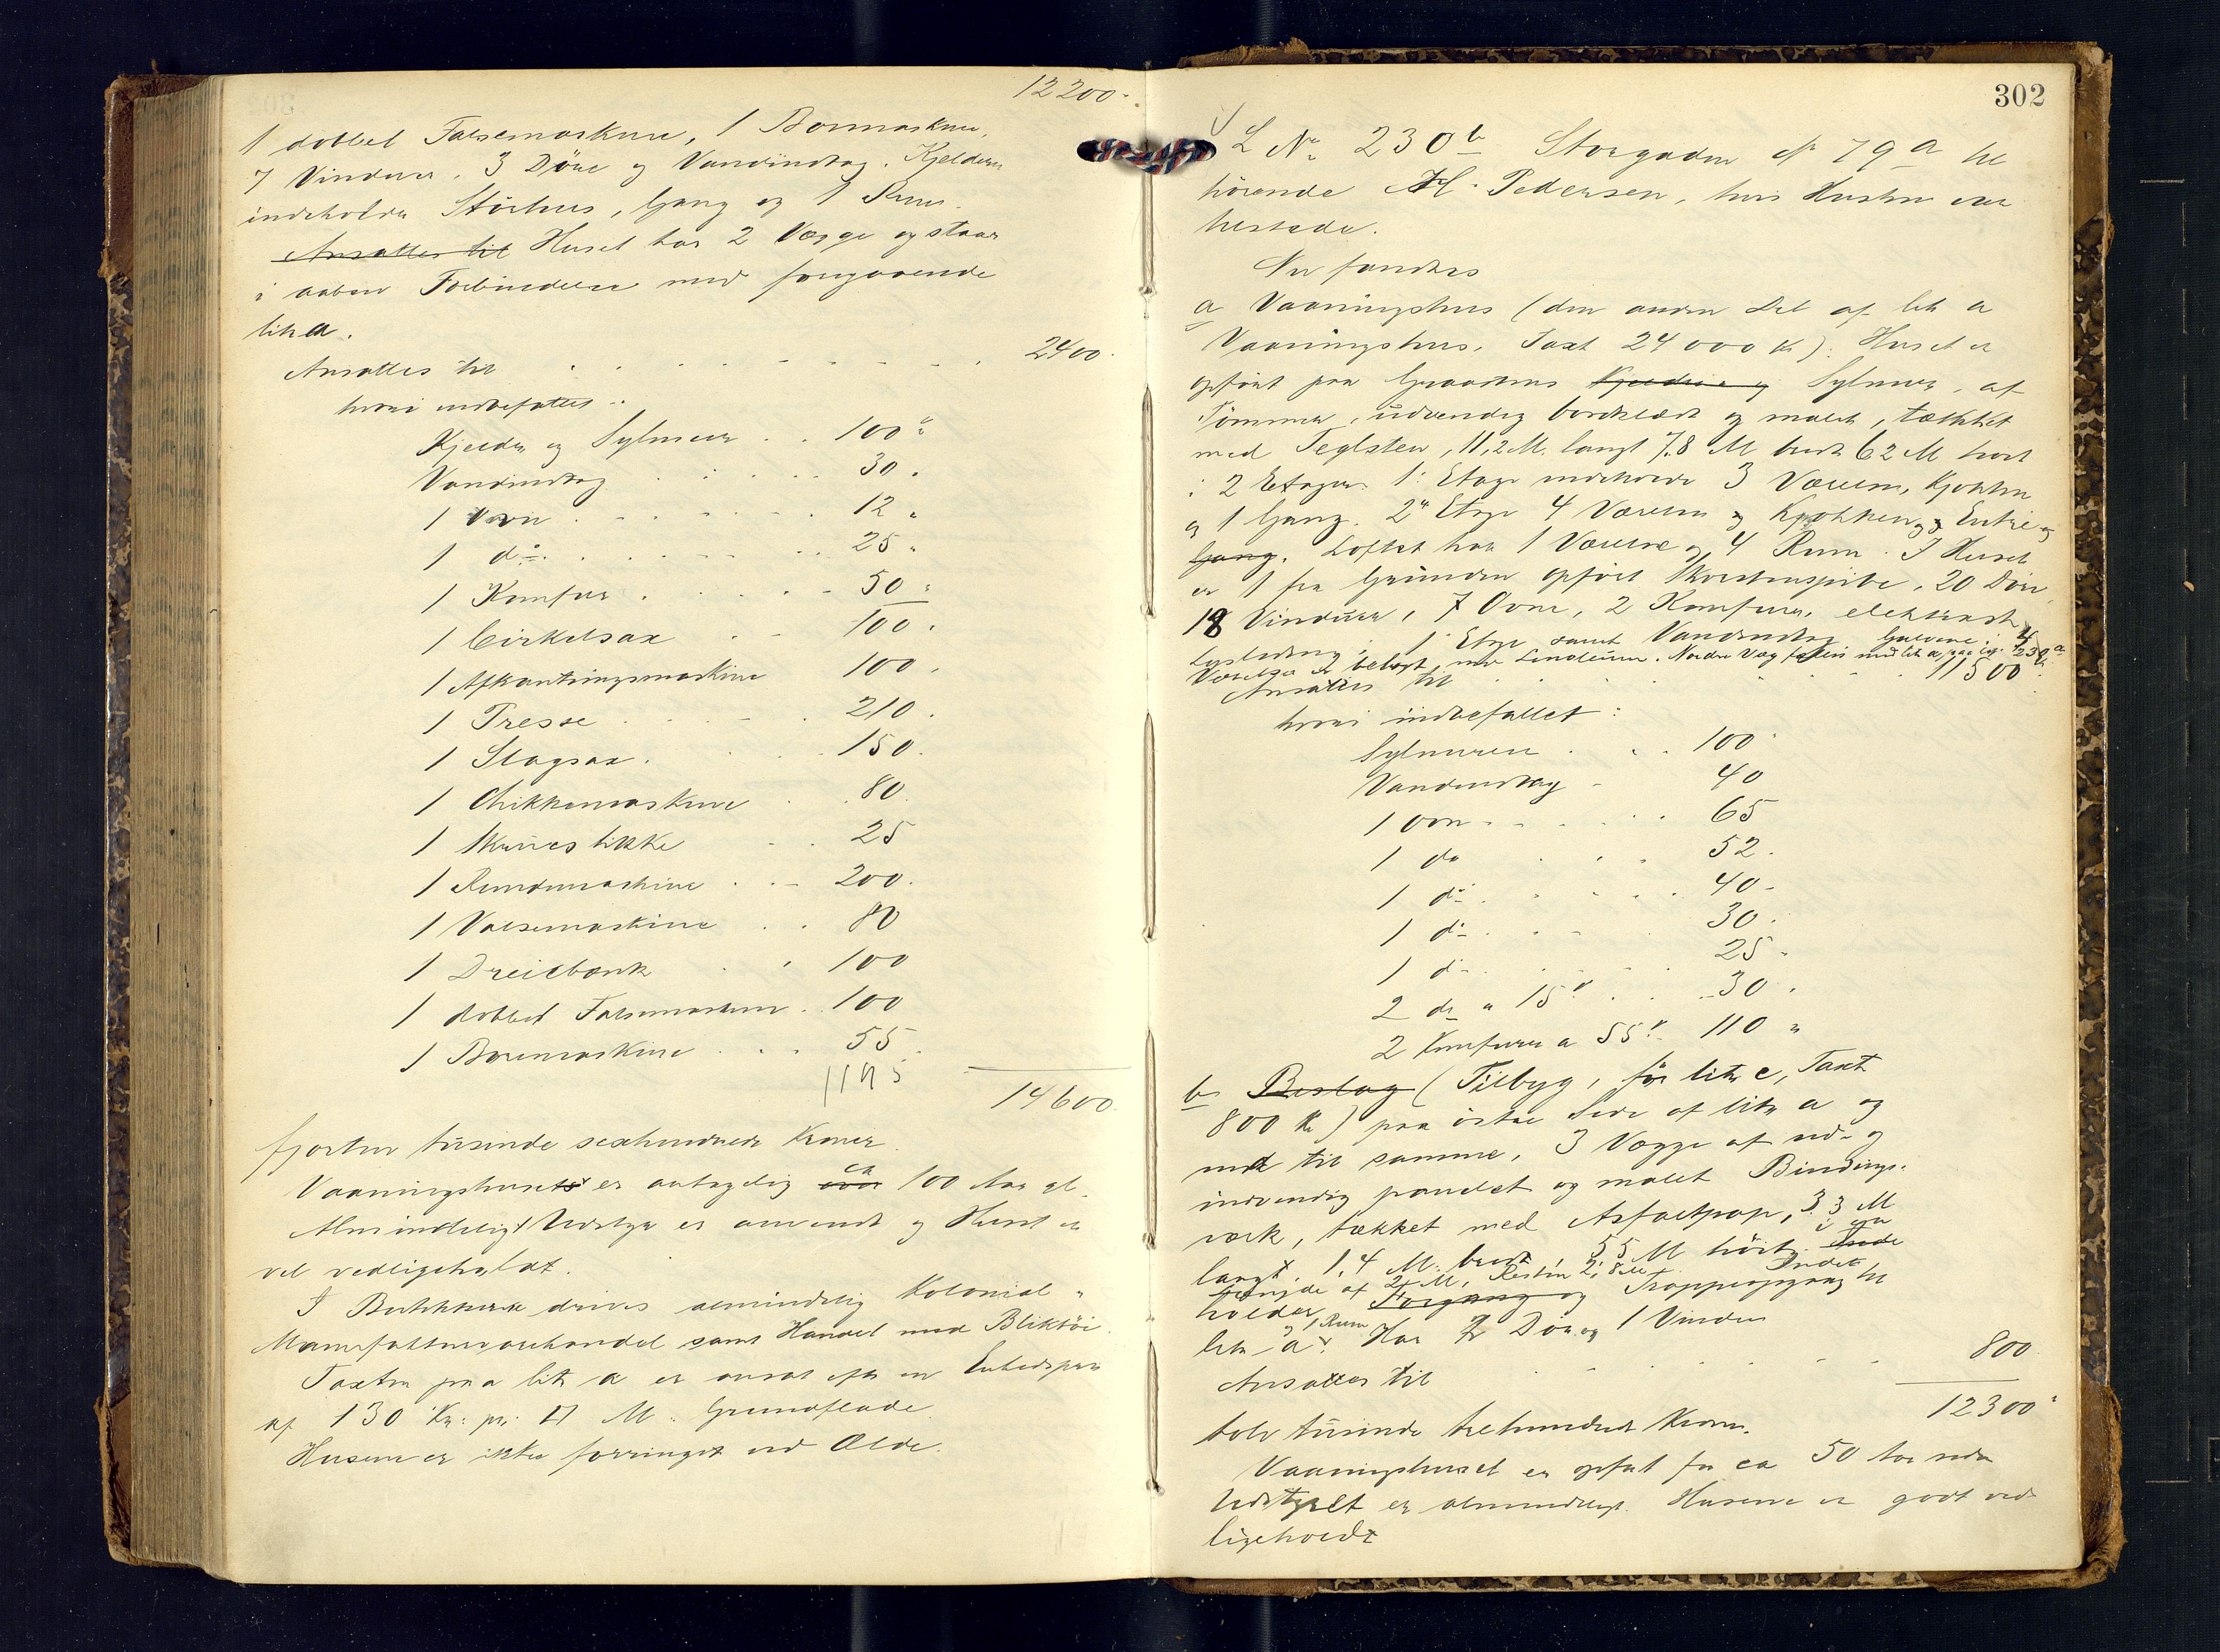 12200.
1 dobbel Falsemaskine, 1 Bormaskine,
7 Vinduer, 3 Döre og Vandindtag. Kjelderen
indeholder Störhus, Gang og 1 Rum.
Ansættes til Huset har 2 Vægge og staar
i aaben Forbindelse med foregaaende
litr a.
Ansættes til . . . . . . . 2400.
hvori indbefattet:
Kjelder og Sylmur . . 100 "
Vandindtag . . . . . 30 "
1 Ovn . . . . . . 12 "
1 do . . . . . . 25 "
1 Komfur . . . . . 50 "
1 Cirkelsax . . 100 "
1 Afkantningsmaskine 100 "
1 Presse . . . . 210 .
1 Slagsax . . . 150 .
1 Chikkemaskine . . 80 .
1 Skruestikke . . 25
1 Rundmaskine . . 200 .
1 Valsemaskine . . 80
1 Dreiebænk . . 100
1 dobbel Falsemaskine . 100
1 Boremaskine . . . 55 .
1195
14600.
fjorten tusinde sexhundrede Kroner.
Vaaningshuset er antagelig over ca 100 Aar gl.
Almindeligt Udstyr er anvendt og Huset er
vel vedligeholdt.
I Butikkerne drives almindelig Kolonial "
Manufakturvarehandel samt Handel med Bliktöi.
Taxten paa litr a er ansat efter en Enhedspris
af 130 Kr: pr. □ M. Grundflade.
Husene er ikke forringet ved Ælde.
302
L No 230b Storgaden No 79a til
hörende M. Pedersen, hvis Hustru var
tilstede.
Nu fandtes
a Vaaningshus (den anden Del af litr a
Vaaningshus, Taxt 24000 Kr). Huset er
opfört paa Graastens Kjelder og Sylmur, af
Tömmer, udvendig bordklædt og malet, tækket
med Teglsten, 11,2 M. langt 7,8 M bredt 6,2 M höit
i 2 Etager. 1ste Etage indeholder 3 Værelser, Kjökken
og 1 Gang. 2den Etage 4 Værelser og Kjökken og Entre og
Gang. Loftet har 1 Værelse og 4 Rum. I Huset
er 1 fra Grunden opfört Skorstenspibe, 20 Döre
18 Vinduer, 7 Ovne, 2 Komfurer, elektrisk
Lysledning i 1ste Etage samt Vandindtag. Gulvene i 4
Værelser er belagt med Linoleum. Nordre Væg fælles med litr a paa Lno. 230a
Ansættes til . . . . . . . . 11500.
hvori indbefattet:
Sylmuren . . . 100 "
Vandindtag - 40
1 Ovn . . . . . . 65
1 do . . . . 52 .
1 do . . . . . . 40 -
1 do . . . . 30 .
1 do . . . . . 25 "
2 do a 15 Kr . . . 30 "
2 Komfurer a 55 Kr. 110 "
b Beslag (Tilbyg, för litr c, Taxt
800 Kr) paa östre Side af litr a og
ind til samme, 3 Vægge af ud- og
indvendig panelet og malet Bindings-
værk, tækket med Asfaltpap, 3,3 M
langt, 1,4 M. bredt, 5,5 M höit i en
Længde af 2,4 M, Resten 2,8 M. Inde
holder Forgang og Trappeopgang til
litr a og 1 Rum. Har 2 Döre og 1 Vindu
Ansættes til . . . . . . 800.
12300 "
tolv tusinde trehundrede Kroner.
Vaaningshuset er opfört for ca 50 Aar siden
Udstyret er almindeligt. Husene er godt ved-
ligeholdt